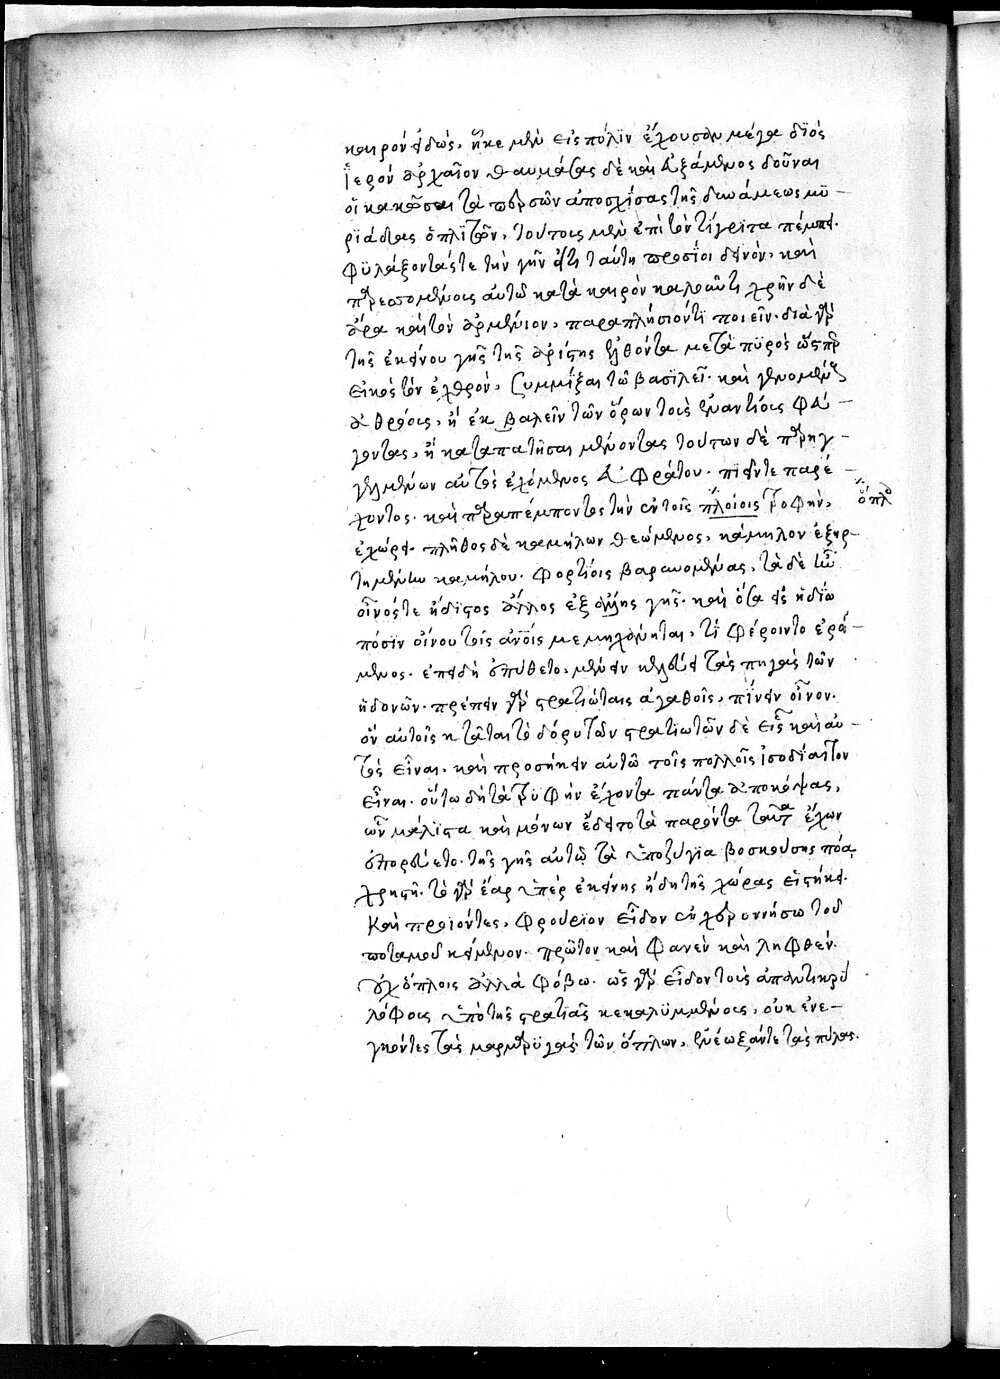 καιρὸν εἰδώς, ἧκε μὲν εἰς πόλϊν ἔχουσαν μέγα διὸς
ἱερόν ἀρχαῖον θαυμάσας δὲ καὶ εὐξάμενος δοῦναι
οἱ κακῶσαι τὰ περσῶν ἀποσχίσας τῆς δυνάμεως μυ –
ριάδας ὁπλϊτῶν, τούτους μὲν ἐπὶ τὸν τίγρϊτα πέμπει.
φϋλάξοντάς τε τὴν γῆν εἴ τι ταύτῃ προσίοι δεινὸν, καὶ
παρεσομένους αὐτῶ κατὰ καιρὸν καλοῦντι χρῆν δὲ
ἄρα καὶ τὸν ἀρμένιον, παραπλήσιόν τι ποιεῖν. διὰ γὰρ
τῆς ἐκείνου γῆς τῆς ἀρίστης ἐλθόντα μετὰ πϋρὸς ὥσπερ
εἰκὸς τὸν ἐχθρὸν, συμμίξαι τῶ βασϊλεῖ. καὶ γενομένους
ἀθρόους, ἢ ἐκβαλεῖν τῶν ὅρων τοὺς ἐναντίους φεύ –
γοντας, ἢ καταπατῆσαι μένοντας τούτων δὲ παρηγ –
γελμένων αὐτὸς ἐχόμενος εὐφράτου. πιεῖν τε παρέ –
χοντος. καὶ παραπέμποντος τὴν ἐν τοῖς πλοίοις τροφὴν, ὅπλοις
ἐχώρει. πλῆθος δὲ καμήλων θεώμενος, κάμηλον ἐξηρ –
τημένην καμήλου. φορτίοις βαρυνομένας, τὰ δὲ ἦν
οἶνός τε ἥδιστος ἄλλος ἐξ ἄλλης γῆς. καὶ ὅσα εἰς ἡδίω
πόσϊν οἴνου τοῖς ἀνοις μεμηχάνηται, τί φέροιντο ἐρό –
μενος. ἐπειδὴ ἐπύθετο, μένειν κελεύει τὰς πηγὰς τῶν
ἡδονῶν. πρέπειν γὰρ στρατιώταις ἀγαθοῖς, πίνειν οἶνον.
ὃν αὐτοῖς κτᾶται τὸ δόρυ τῶν στρατϊωτῶν δὲ εἷς καὶ αὐ –
τὸς εἶναι. καὶ προσήκειν αὐτῶ τοῖς πολλοῖς ἰσοδίαιτον
εἶναι. οὕτω δὴ τὰ τρϋφὴν ἔχοντα πάντα ἀποκόψας,
ὧν μάλιστα καὶ μόνων ἔδει τὸ τὰ παρόντα ταῦτα ἔχων
ἐπορεύετο. τῆς γῆς αὐτῷ τὰ ὑποζύγϊα βοσκούσης πόα
χρηστῆ. τὸ γὰρ ἔαρ ὑπὲρ ἐκείνης ἤδη τῆς χώρας εἱστήκει.
Καὶ προϊόντες, φρούριον εἶδον ἐν χερρονήσω τοῦ
ποταμοῦ κείμενον. πρῶτον καὶ φανὲν καὶ ληφθέν.
οὐχ ὅπλοις ἀλλὰ φόβω. ὡς γὰρ εἶδον τοὺς ἀπαντικρὺ
λόφους ὑπὸ τῆς στρατιᾶς κεκαλϋμμένους, οὐκ ἐνε –
γκόντες τὰς μαρμαρϋγὰς τῶν ὅπλων, ἐνέωξάν τε τὰς πύλας.